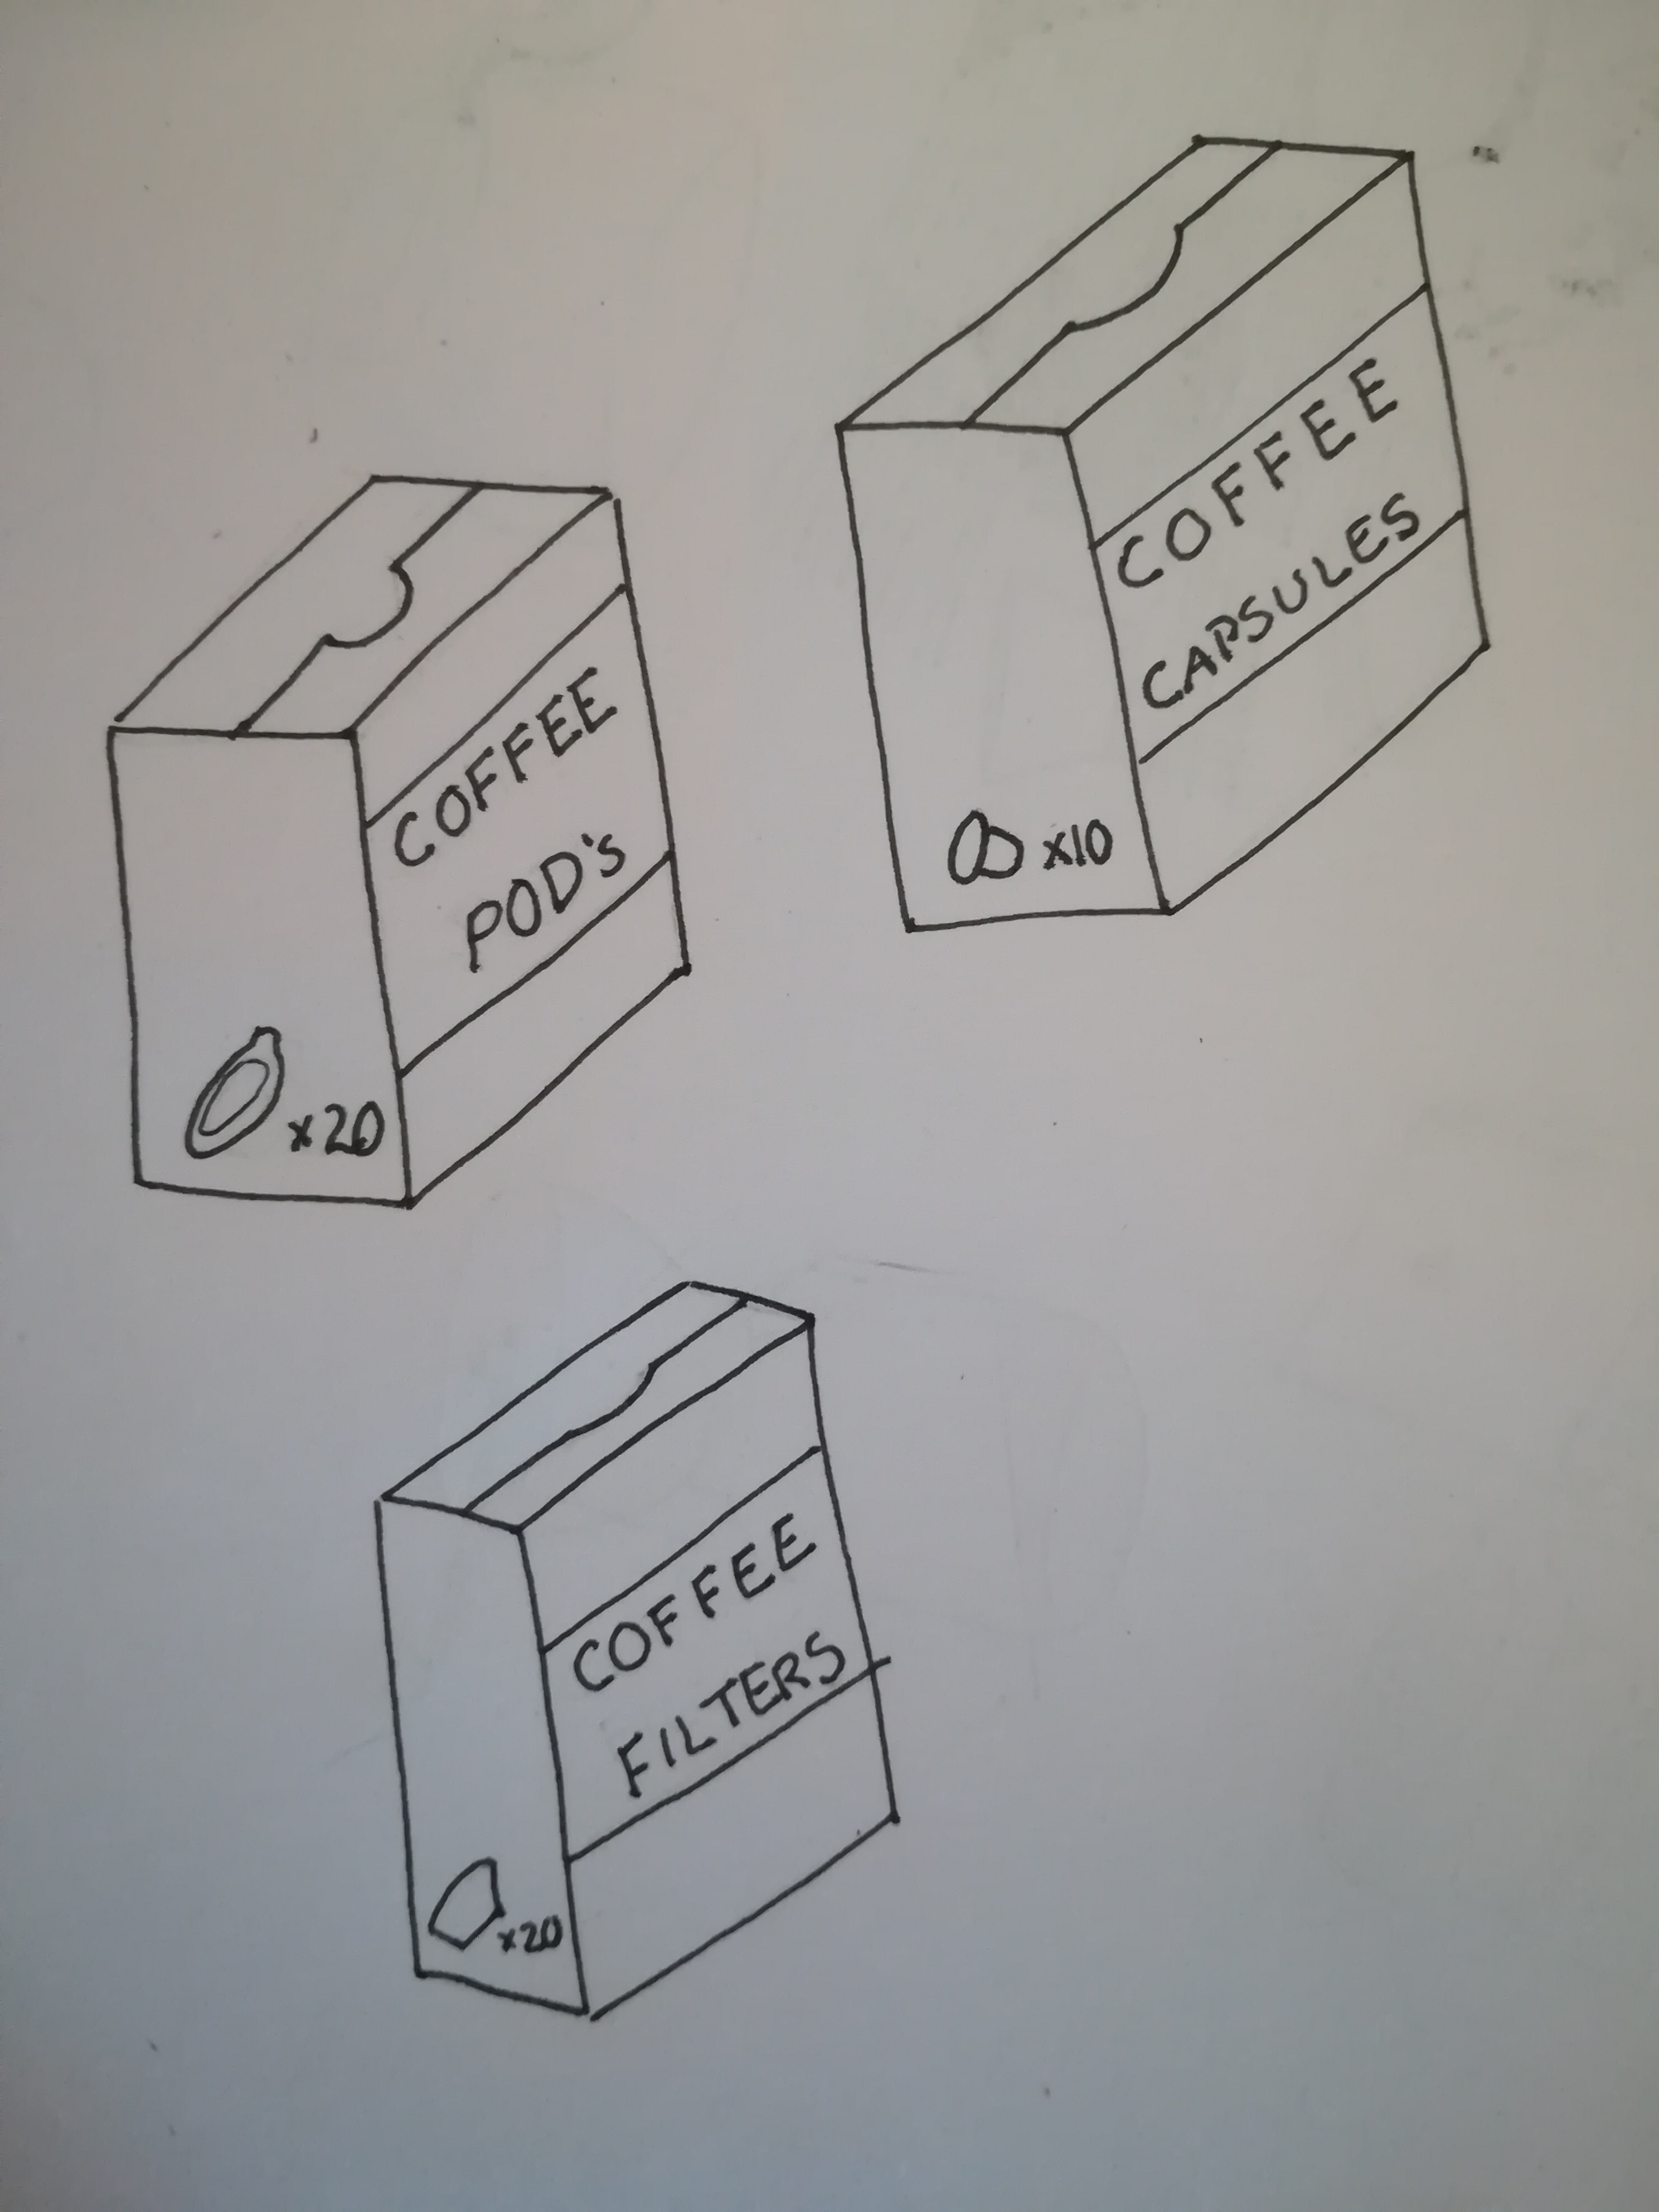 COFFEE
POD's
x20
COFFEE
CAPSULES
x10
COFFEE
FILTERS
x20